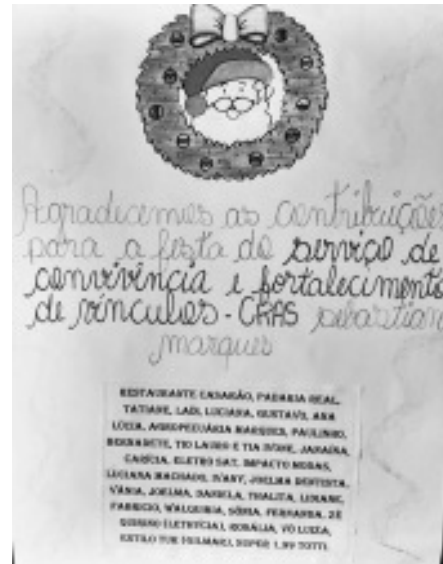 Agradecemos as contribuições
para a festa do serviço de
convivência e fortalecimento
de vínculos - CRAS sebastian
marques
RESTAURANTE CASARÃO, PADARIA REAL,
TATIANE, LADI, LUCIANA, GUSTAVO, ANA
LUIZA, AGROPECUÁRIA MARQUES, PAULINHO,
BERNADETE, TIO LAURO E TIA IVONE, JANAÍNA,
CARÍCIA, ELETRO SAT, IMPACTO MODAS,
LUCIANA MACHADO, IVANY, JOELMA DENTISTA,
VÂNIA, JOELMA, DANIELA, THALITA, LIDIANE,
FABRICIO, WALQUIRIA, SÔNIA, FERNANDA, ZÉ
(ELETRICIA), ROSÁLIA, VÓ LUIZA,
ESTILO TUR SUPER 1,99 TOTTI.